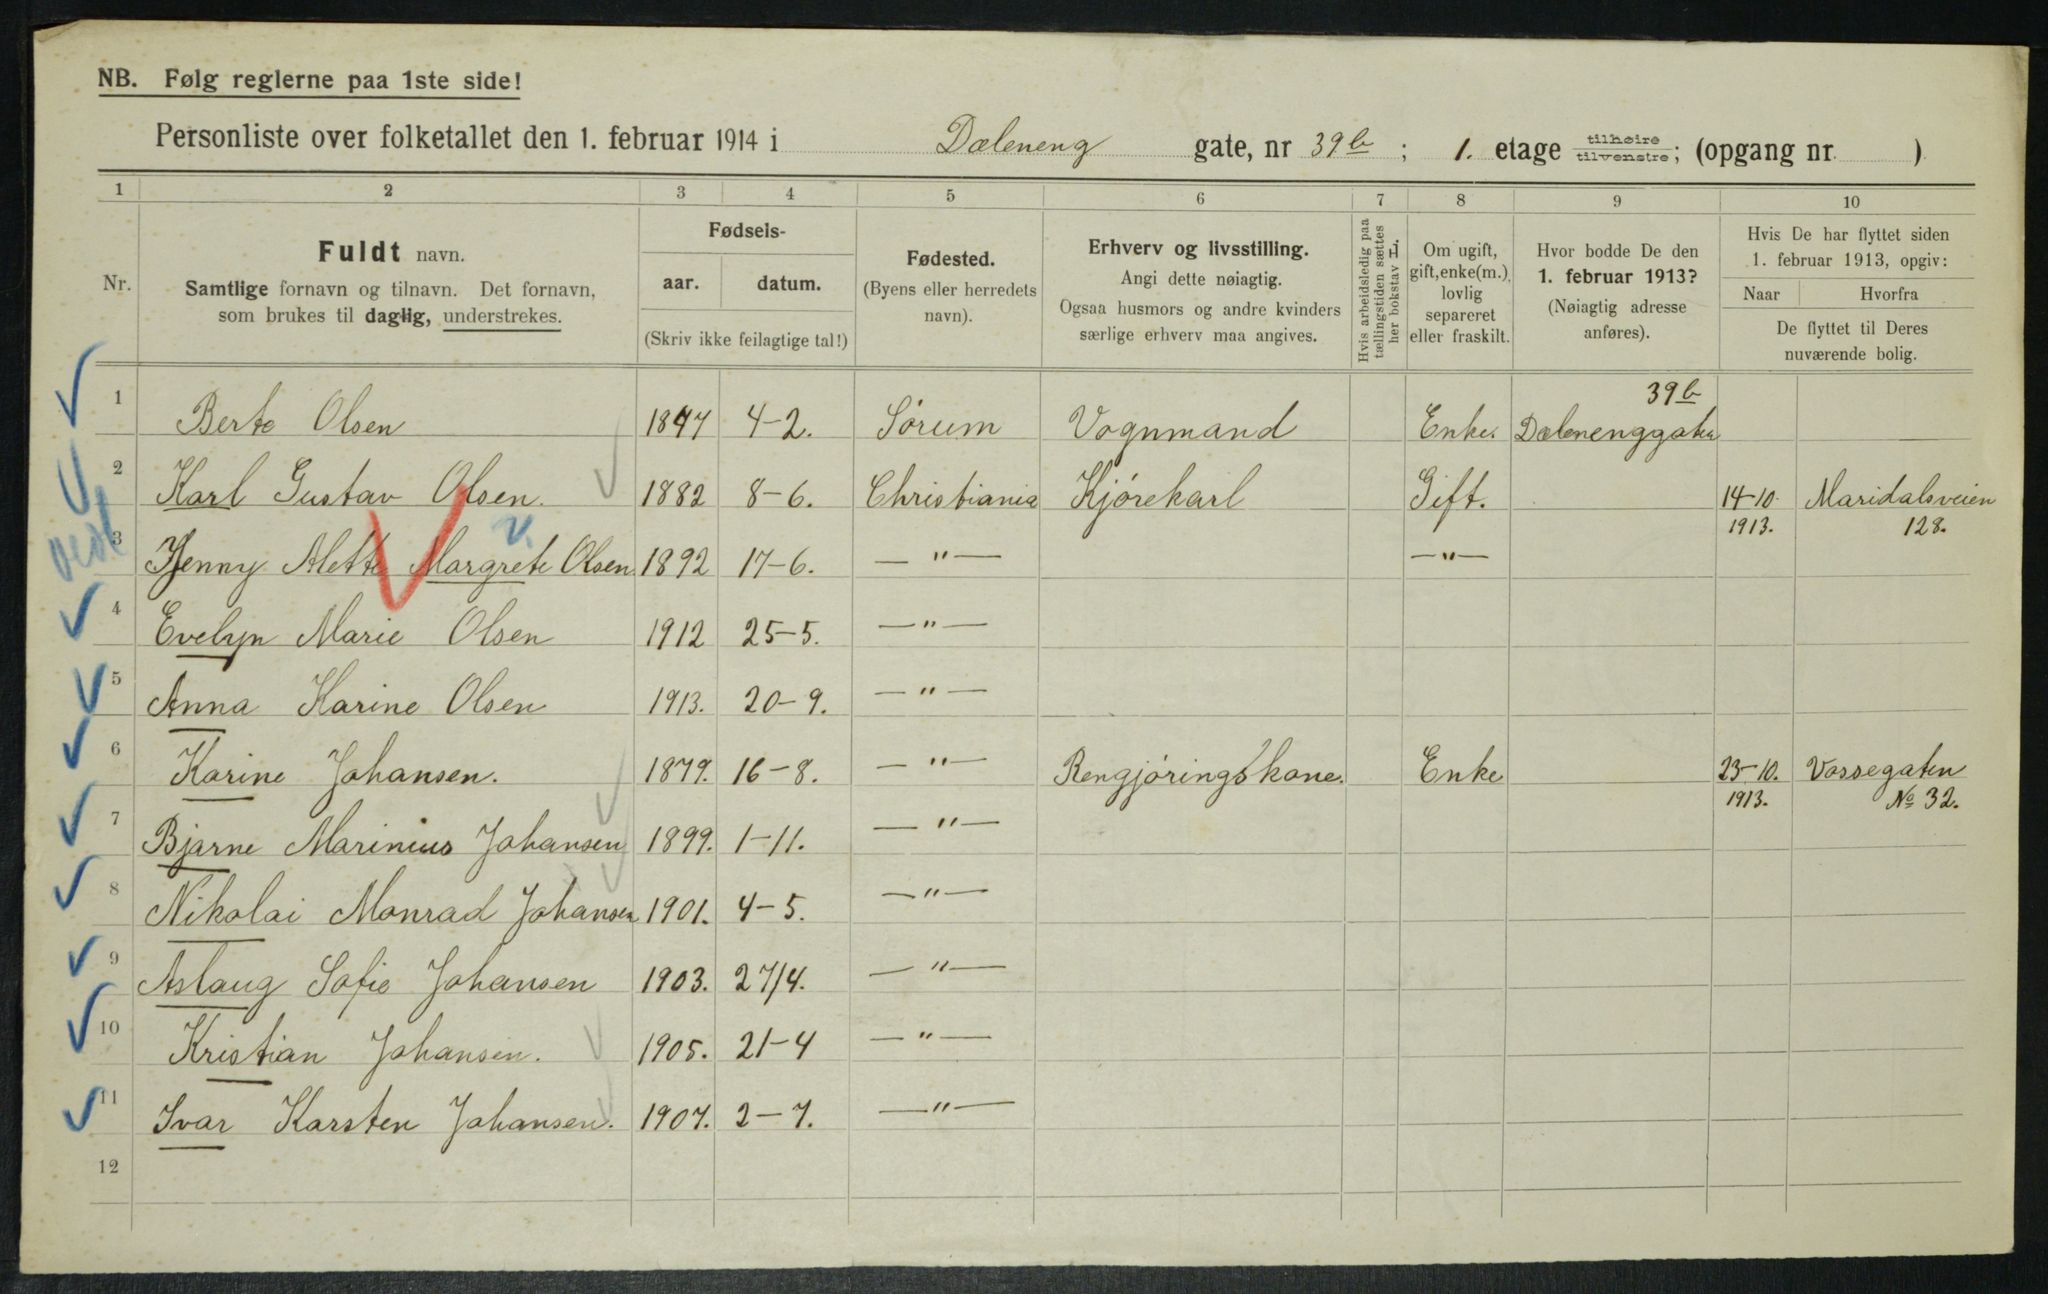 NB. Følg reglerne paa 1ste side!
Personliste over folketallet den 1. februar 1914 i Dæleneng gate, nr 39b; 1. etage tilhøire/tilvenstre; (opgang nr )
1 2 3 4 5 6 7 8 9 10
Nr.
Fuldt navn.
Samtlige fornavn og tilnavn. Det fornavn,
som brukes til daglig, understrekes.
Fødsels-
aar. datum.
(Skriv ikke feilagtige tal!)
Fødested.
(Byens eller herredets
navn).
Erhverv og livsstilling.
Angi dette nøiagtig.
Ogsaa husmors og andre kvinders
særlige erhverv maa angives.
Hvis arbeidsledig paa
tællingstiden sættes
her bokstav L.
Om ugift,
gift, enke(m.),
lovlig
separeret
eller fraskilt.
Hvor bodde De den
1. februar 1913?
(Nøiagtig adresse
anføres).
Hvis De har flyttet siden
1. februar 1913, opgiv:
Naar Hvorfra
De flyttet til Deres
nuværende bolig.
39b
1 Berte Olsen 1847 4-2. Sørum Vognmand Enke. Dælenenggata
2 Karl Gustav Olsen. 1882 8-6. Christiania Kjørekarl Gift. 14-10 Maridalsveien
1913. 128.
3 Jenny Alette Margrete Olsen 1892 17-6. — " — — " —
v.
4 Evelyn Marie Olsen 1912 25-5. — " —
5 Anna Karine Olsen 1913. 20-9. — " —
6 Karine Johansen. 1879. 16-8. — " — Rengjøringskone. Enke 23-10. Vossegaten
1913. No 32.
7 Bjarne Marinius Johansen 1899. 1-11. — " —
8 Nikolai Monrad Johansen 1901. 4-5. — " —
9 Aslaug Sofie Johansen 1903. 27/4. — " —
10 Kristian Johansen. 1905. 21-4 — " —
11 Ivar Karsten Johansen. 1907. 2-7. — " —
12